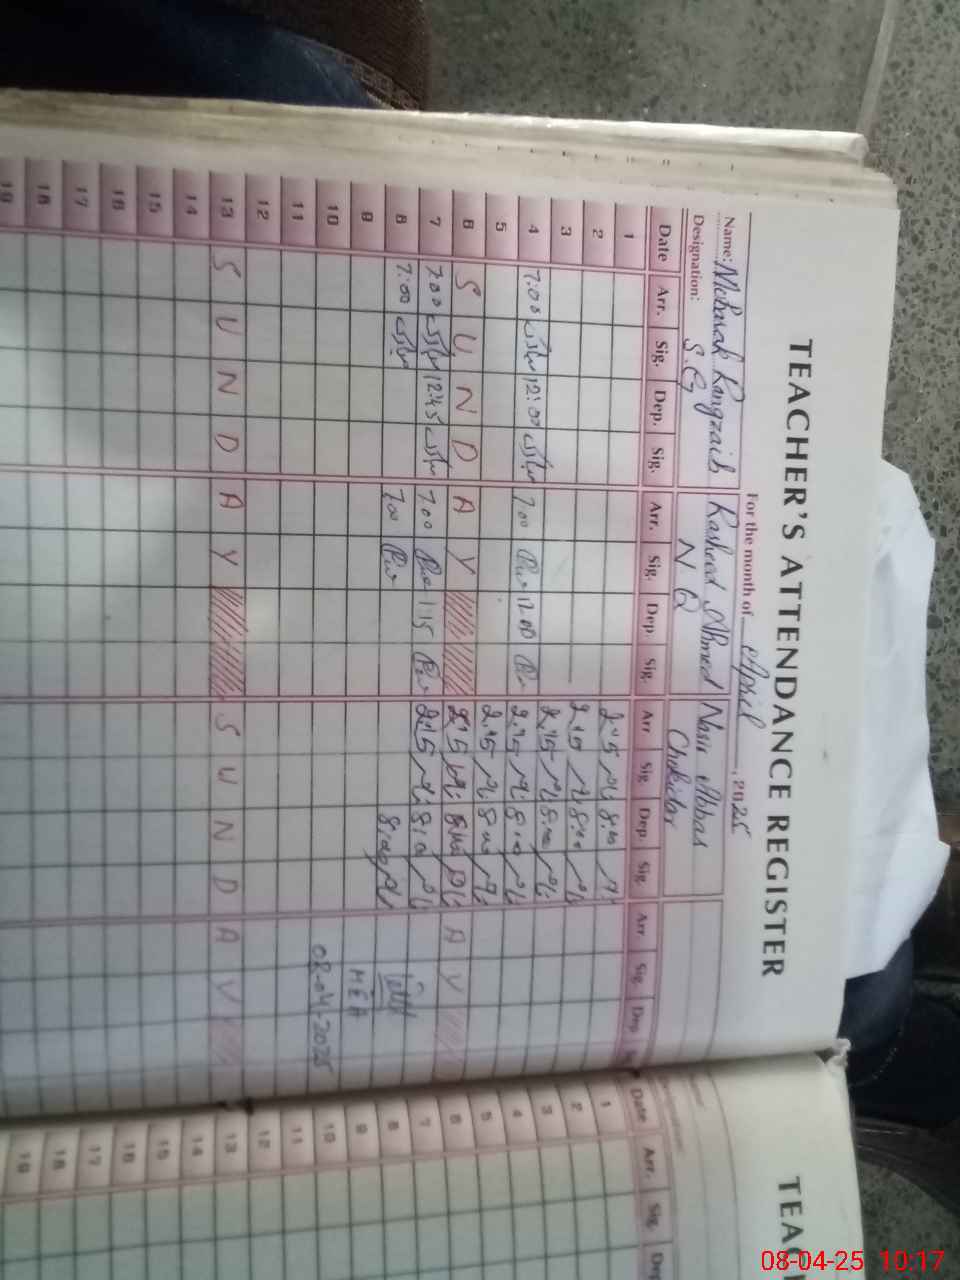 TEACHER'S ATTENDANCE REGISTER
For the month of April, 2025
Name: Mobarak Rangzaib Rasheed Ahmed Nasir Abbas
Designation: S.G N Q Chokidar
Date Arr. Sig. Dep. Sig. Arr. Sig. Dep. Sig. Arr Sig Dep. Sig. Arr Sig Dep
1 2:45 8:00
2 2:45 8:00
3 2:45 8:00
4 7:00 12:00 7:00 12:00 2:45 8:00
5 2:45 8:00
6 S U N D A Y 2:45 8:00 A Y
7 7:00 12:45 7:00 1:15 2:45 8:00
8 7:00 7:00 8:00
9 MEA
10 08-04-2025
11
12
13 S U N D A Y S U N D A Y
14
15
16
17
18
19
TEAC
Date Arr. Sig Dep
1
2
3
4
5
6
7
8
9
10
11
12
13
14
15
16
17
18
19
08-04-25 10:17